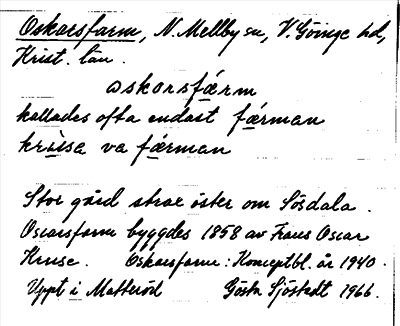 Oskarsfarm, N. Mellby sn, V. Göinge hd,
Krist. län.
oskorsfárm
kallades ofta endast fárman
va fárman
Stor gård strax öster om Sösdala.
Oscarsfarm byggdes 1858 av Frans Oscar
Kruse. Oskarsfarm: Konceptbl. år 1940.
Uppt i Matteröd Gösta Sjöstedt 1966.